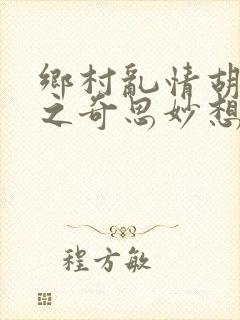 鄉村亂情胡
之奇思妙想
程方敏